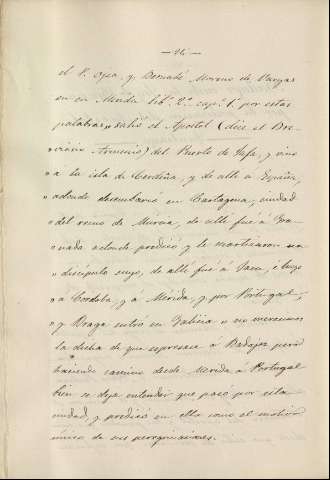 — 26 —
el P. Ojea, y Bernabé Moreno de Vargas
en su Merida lib.º 2.º cap.º 1.º por estas
palabras, » salió el Apostol (dice el Bre-
» viario Armenio) del Puerto de Jafa, y vino
» a la isla de Cerdeña, y de alli a España,
» adonde desembarcó en Cartagena, ciudad
» del reino de Murcia, de alli fué á Gra-
» nada adonde predicó y le martirizaron un
» discípulo suyo, de alli fué á Jaen, é luego
» á Cordoba, y á Mérida, y por Portugal,
» y Braga entró en Galicia » no merecimos
la dicha de que espresase á Badajoz pero
haciendo camino desde Merida á Portugal
bien se deja entender que pasó por esta
ciudad, y predicó en ella como el motivo
único de sus peregrinaciones.